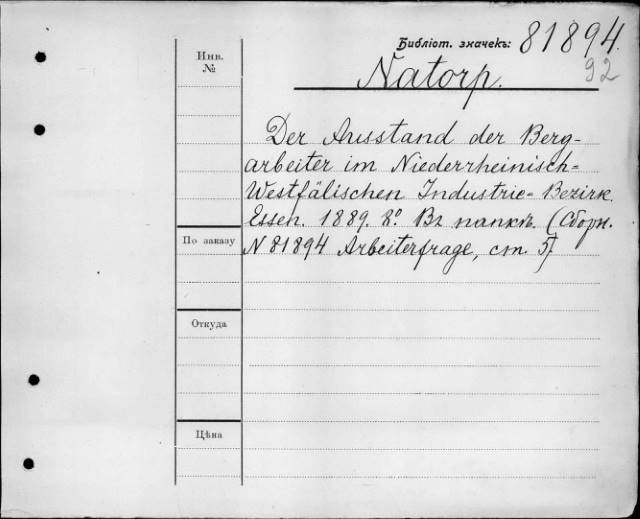 Библіот. значекъ: 81894.
92
Инв. №
Natorp.
Der Ausstand der Berg-
arbeiter im Niederrheinisch=
Westfälischen Industrie-Bezirk.
Essen. 1889. 8º. Въ папкѣ. (Сборн.
По заказу
N 81894 Arbeiterfrage, ст. 5)
Откуда
Цѣна